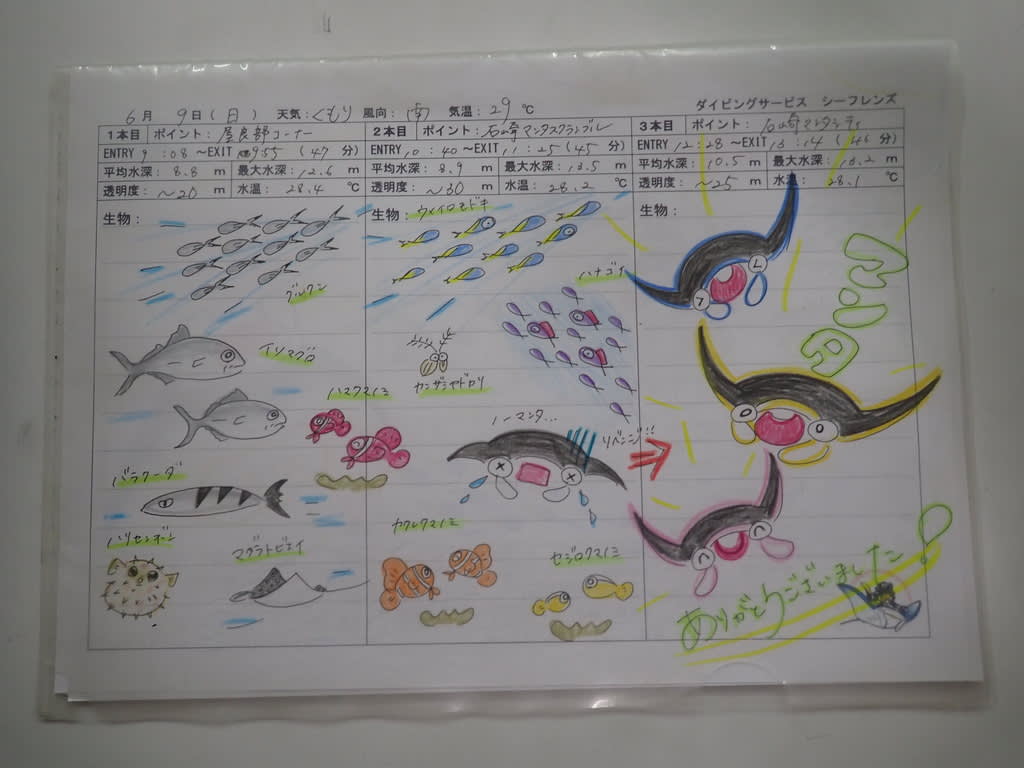 ダイビングサービス シーフレンズ
6月 9日(日) 天気:くもり 風向:南 気温:29℃
1本目 ポイント:屋良部コーナー
ENTRY 9:08~EXIT 9:55 (47分)
平均水深:8.8m 最大水深:12.6m
透明度:~20m 水温:28.4℃
生物:
グルクン
イソマグロ
ハマクマノミ
バラクーダ
ハリセンボン
マダラトビエイ
2本目 ポイント:石崎マンタスクランブル
ENTRY 10:40~EXIT 11:25 (45分)
平均水深:8.9m 最大水深:13.5m
透明度:~30m 水温:28.2℃
生物:
ウメイロモドキ
ハナゴイ
カンザシヤドカリ
ノーマンタ...
リベンジ!!
カクレクマノミ
セジロクマノミ
3本目 ポイント:石崎マンタシティ
ENTRY 12:28~EXIT 13:14 (46分)
平均水深:10.5m 最大水深:13.2m
透明度:~25m 水温:28.1℃
生物:
ありがとうございました